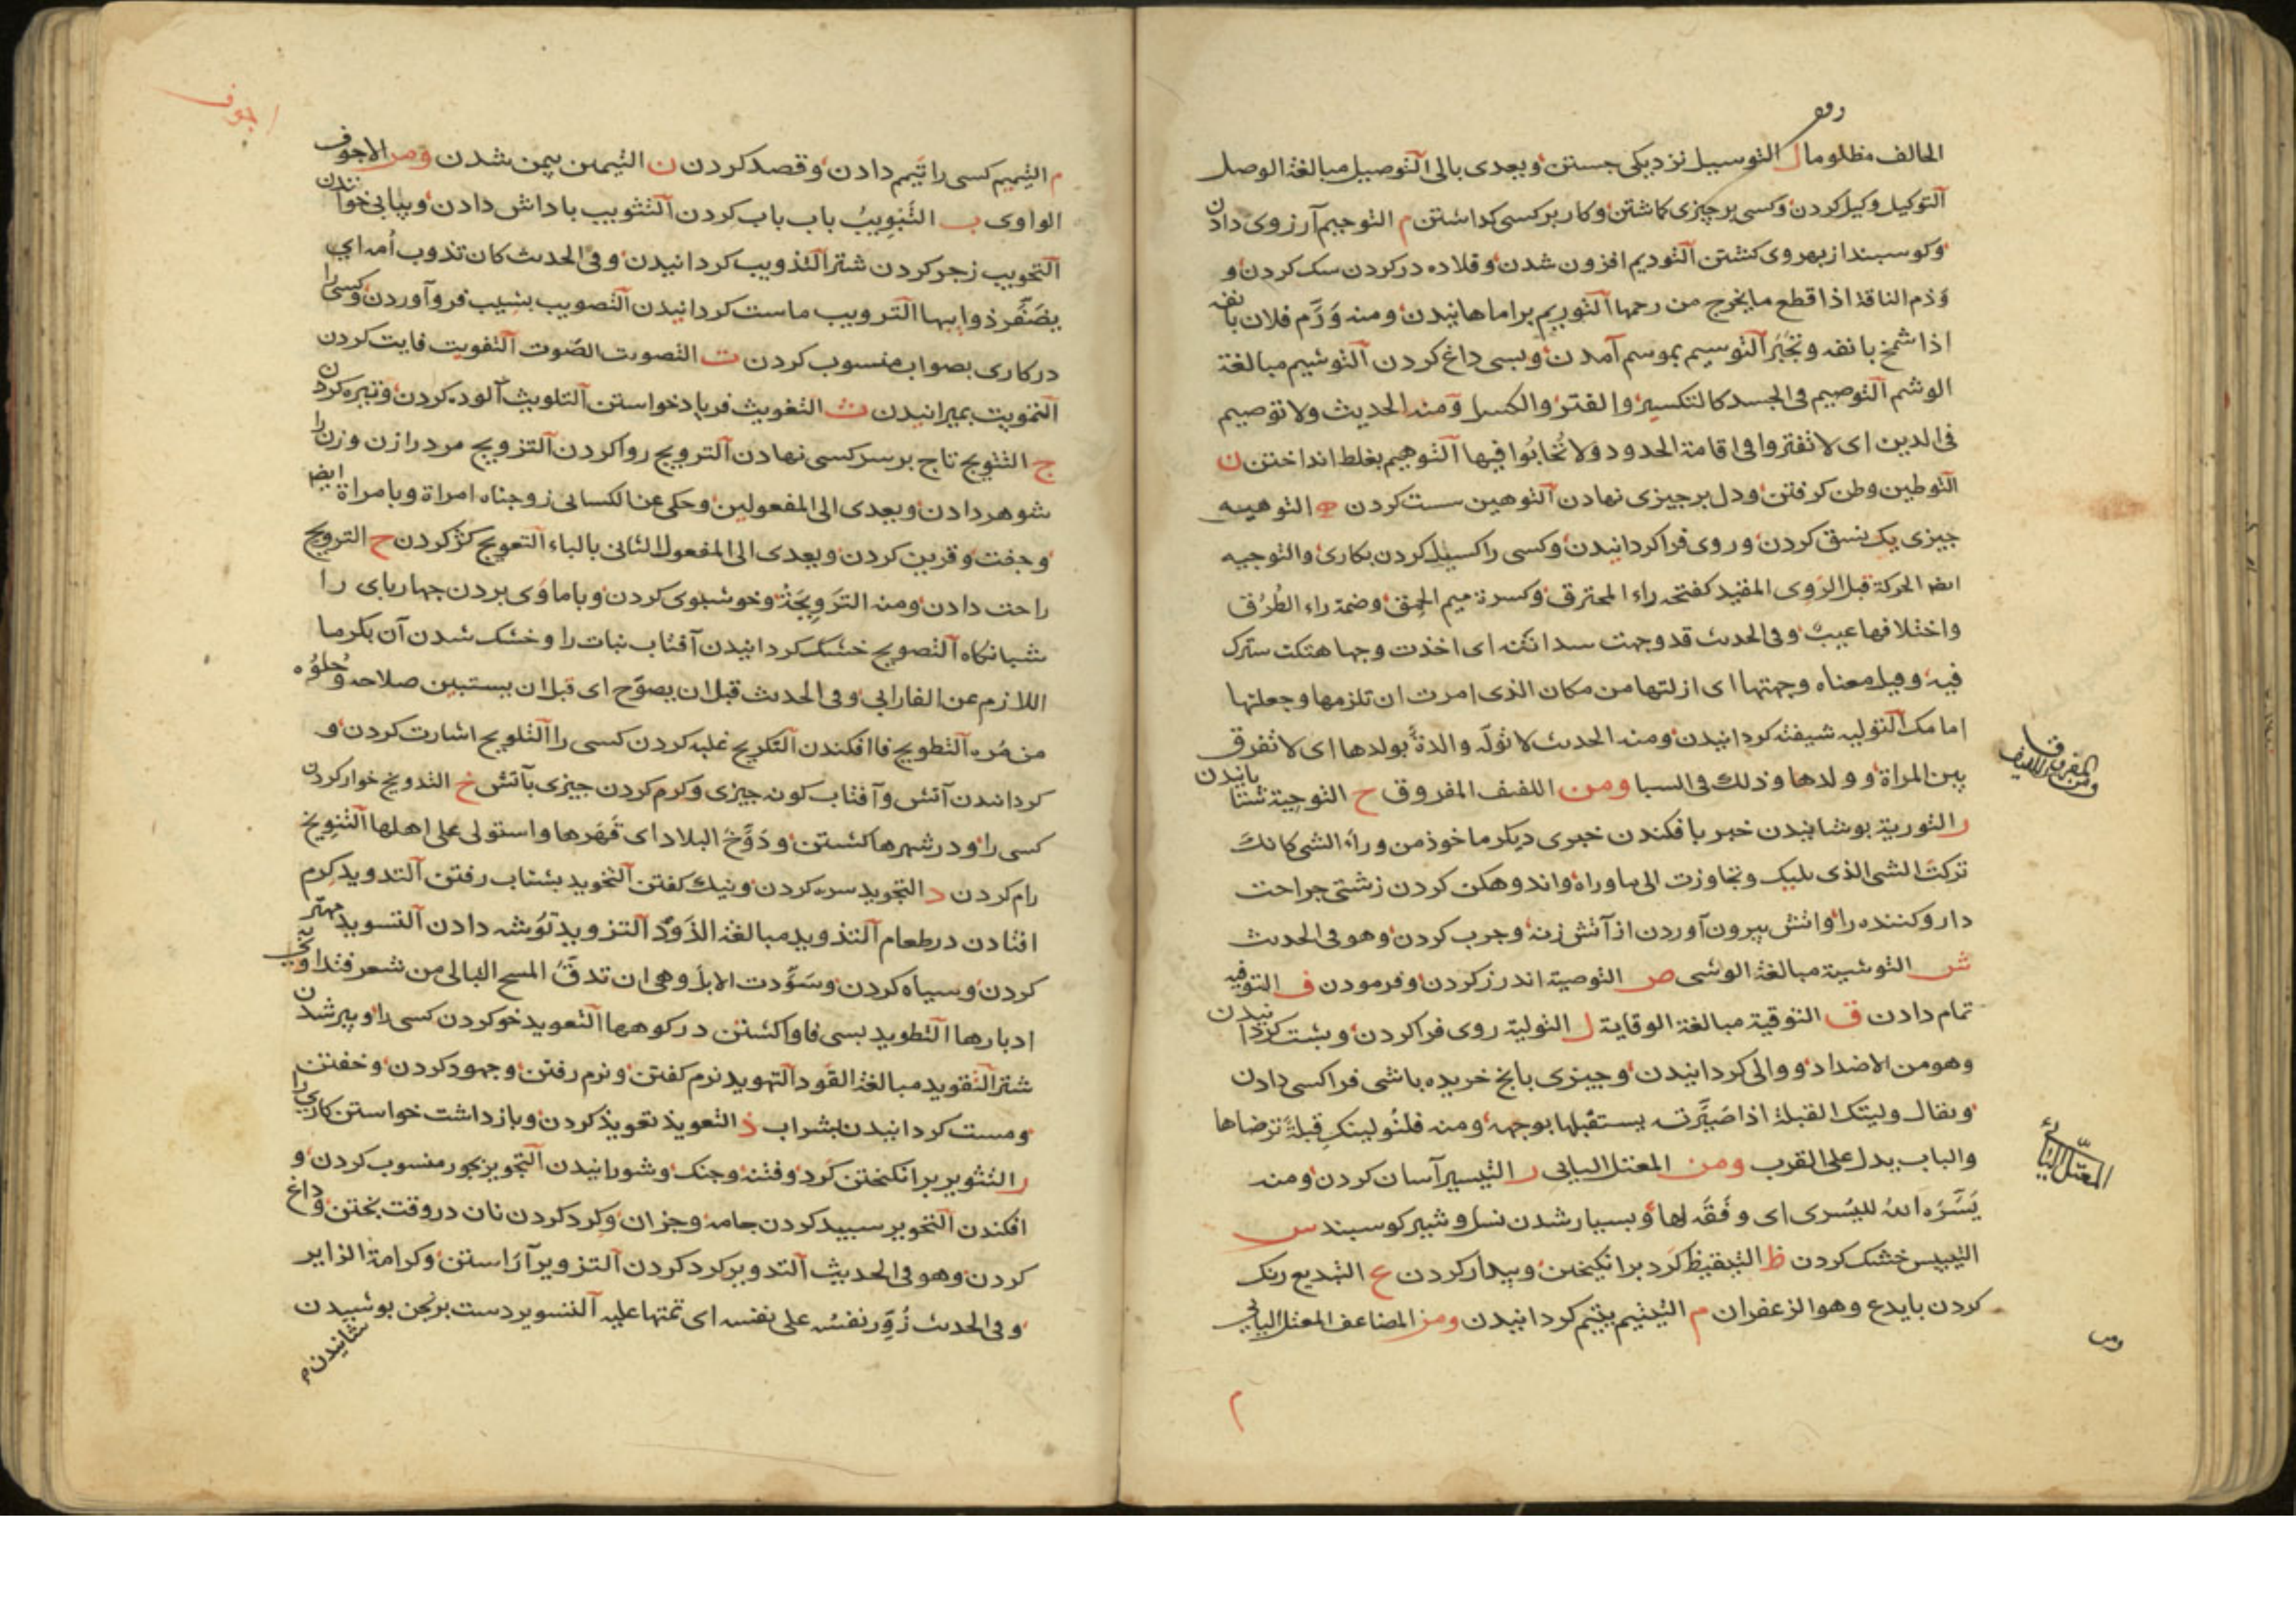 الحالف مظلوما ل التوسيل نزديكى جستن وبعدى بالى التوصيل مبالغة الوصل
التوكيل وكيل كردن وكسى برچيزى كماشتن وكار بركسى كذاشتن م التوجيم آرزوى دادن
وكوسبند ازبهروى كشتن التوديم افزون شدن وقلاده در كردن سك كردن و
وَذم الناقة اذا قطع مايخرج من رحمها التوريم براماهانيدن ومنه وَرَّم فلان بانفه
اذا شمخ بانفه وتجبّر التوسيم بموسم آمدن وبسى داغ كردن التوشيم مبالغة
الوشم التوصيم فى الجسد كالتكسير والفتر والكسل ومنه الحديث ولا توصيم
فى الدين اى لا تفتروا فى اقامة الحدود ولا تُحابُوا فيها التوهيم بغلط انداختن ن
التوطين وطن كرفتن ودل برجيزى نهادن التوهين سست كردن ه التوجيه
جيزى يك نسق كردن وروى فراكردانيدن وكسى را كسيل كردن بكارى والتوجيه
ايضا الحركة قبل الروى المقيد كفتحه راء المحترق وكسرة ميم الحمق وضمة راء الطرُق
واختلافها عيب وفى الحديث قد وجهت سدافته اى اخذت وجها هتكت سترك
فيه وقيل معناه وجهتها اى ازلتها من مكان الذى امرت ان تلزمها وجعلتها
امامك التوليه شيفته كردانيدن ومنه الحديث لا تولّه والدةٌ بولدها اى لا تفرق
بين المراة وولدها وذلك فى السبا ومن اللفيف المفروق ح التوحية شتابانيدن
ومن المفروق اللفيف
ر التورية بوشانيدن خبر بافكندن خبرى ديكر ماخوذ من وراء الشى كانك
تركت الشى الذى يليك وتجاوزت الى ماوراه واندوهكن كردن زشتى جراحت
داروكننده را واتش بيرون آوردن از آتش زنه وجرب كردن وهو فى الحديث
ش التوشية مبالغة الوشى ص التوصية اندرز كردن وفرمودن ف التوفيه
تمام دادن ق التوقية مبالغة الوقاية ل التولية روى فراكردن وبشت كردانيدن
وهو من الاضداد ووالى كردانيدن وجيزى بانخ خريده باشى فراكسى دادن
ويقال وليتك القبلة اذا صَيَّرته يستقبلها بوجهه ومنه فلنُولينك قبلةً ترضاها
والباب يدل على القرب ومن المعتل اليايى ر التيسير آسان كردن ومنه
المعتل اليائى
يَسَّرَه الله لليُسرى اى وفّقه لها وبسيار شدن نسل وشير كوسبند س
التيبيس خشك كردن ظ التيقيظ كَرد برانكيختن وبيدار كردن ع التيديع رنك
كردن بايدع وهو الزعفران م التيتيم يتيم كردانيدن ومن المضاعف المعتل اليايى
اجوف
م التيميم كسى را تيمم دادن وقصد كردن ن التيمين بيمن شدن ومن الاجوف
الواوى ب التبويب باب باب كردن التثويب باداش دادن وبيابى خواندن
التحويب زجر كردن شتر التذويب كردانيدن وفى الحديث كان تذوب اُمه اى
يضَفّر ذوايبها الترويب ماست كردانيدن التصويب بشيب فرو آوردن وكسى را
دركارى بصواب منسوب كردن ت التصويت الصّوت التفويت فايت كردن
التمويت بميرانيدن ث التغويث فرياد خواستن التلويث آلوده كردن وتيره كردن
ج التتويج تاج برسر كسى نهادن الترويج روا كردن التزويج مرد را زن وزن را
شوهر دادن وبعدى الى المفعولين وحكى عن الكسائى زوجناه امراة وبامراة ايضا
وجفت وقرين كردن وبعدى الى المفعول الثانى بالباء التعويج كژ كردن ح الترويح
راحت دادن ومنه التَروِيحَة وخوشبوى كردن وبا ماوى بردن جهارباى را
شبانكاه التصويح خشك كردانيدن آفتاب نبات را وخشك شدن آن بكرما
اللازم عن الفارابى وفى الحديث قبل ان يصوّح اى قبل ان يستبين صلاحه وحلوُه
من مُرِه التطويح فاافكندن التكويح غلبه كردن كسى را التلويح اشارت كردن و
كردانيدن آتش وآفتاب كونه جيزى وكرم كردن جيزى بآتش خ التدويخ خوار كردن
كسى را ودر شهرها كشتن ودَوَّخَ البلاد اى قَهَرها واستولى على اهلها التنويخ
رام كردن د التجويد سره كردن ونيك كفتن التخويد بشتاب رفتن التدويد كرم
افتادن درطعام التذويد مبالغة الذَودُ التزويد توشه دادن التسويد مهتر
كردن وسياه كردن وسَوَّدت الابل وهى ان تدقّ المسح البالى من شعر فتداوى به
ادبارها التطويد بسى فاواكشتن در كوهها التعويد خو كردن كسى را وپير شدن
شتر التقويد مبالغة القود التهويد نرم كفتن ونرم رفتن وجهود كردن وخفتن
ومست كردانيدن بشراب ذ التعويذ تعويذ كردن وبازداشت خواستن كارى را
ر التثوير برانكيختن كرد وفتنه وجنك وشورانيدن التجوير بجور منسوب كردن و
افكندن التحوير سبيد كردن جامه وجزان وكرد كردن نان دروقت بختن وداغ
كردن وهو فى الحديث التدوير كرد كردن التزوير آراستن وكرامة الزاير
وفى الحديث زُوِّر نفسُه على نفسه اى تمتها عليه التسوير دست برنجن بوشيدن
شانيدن م